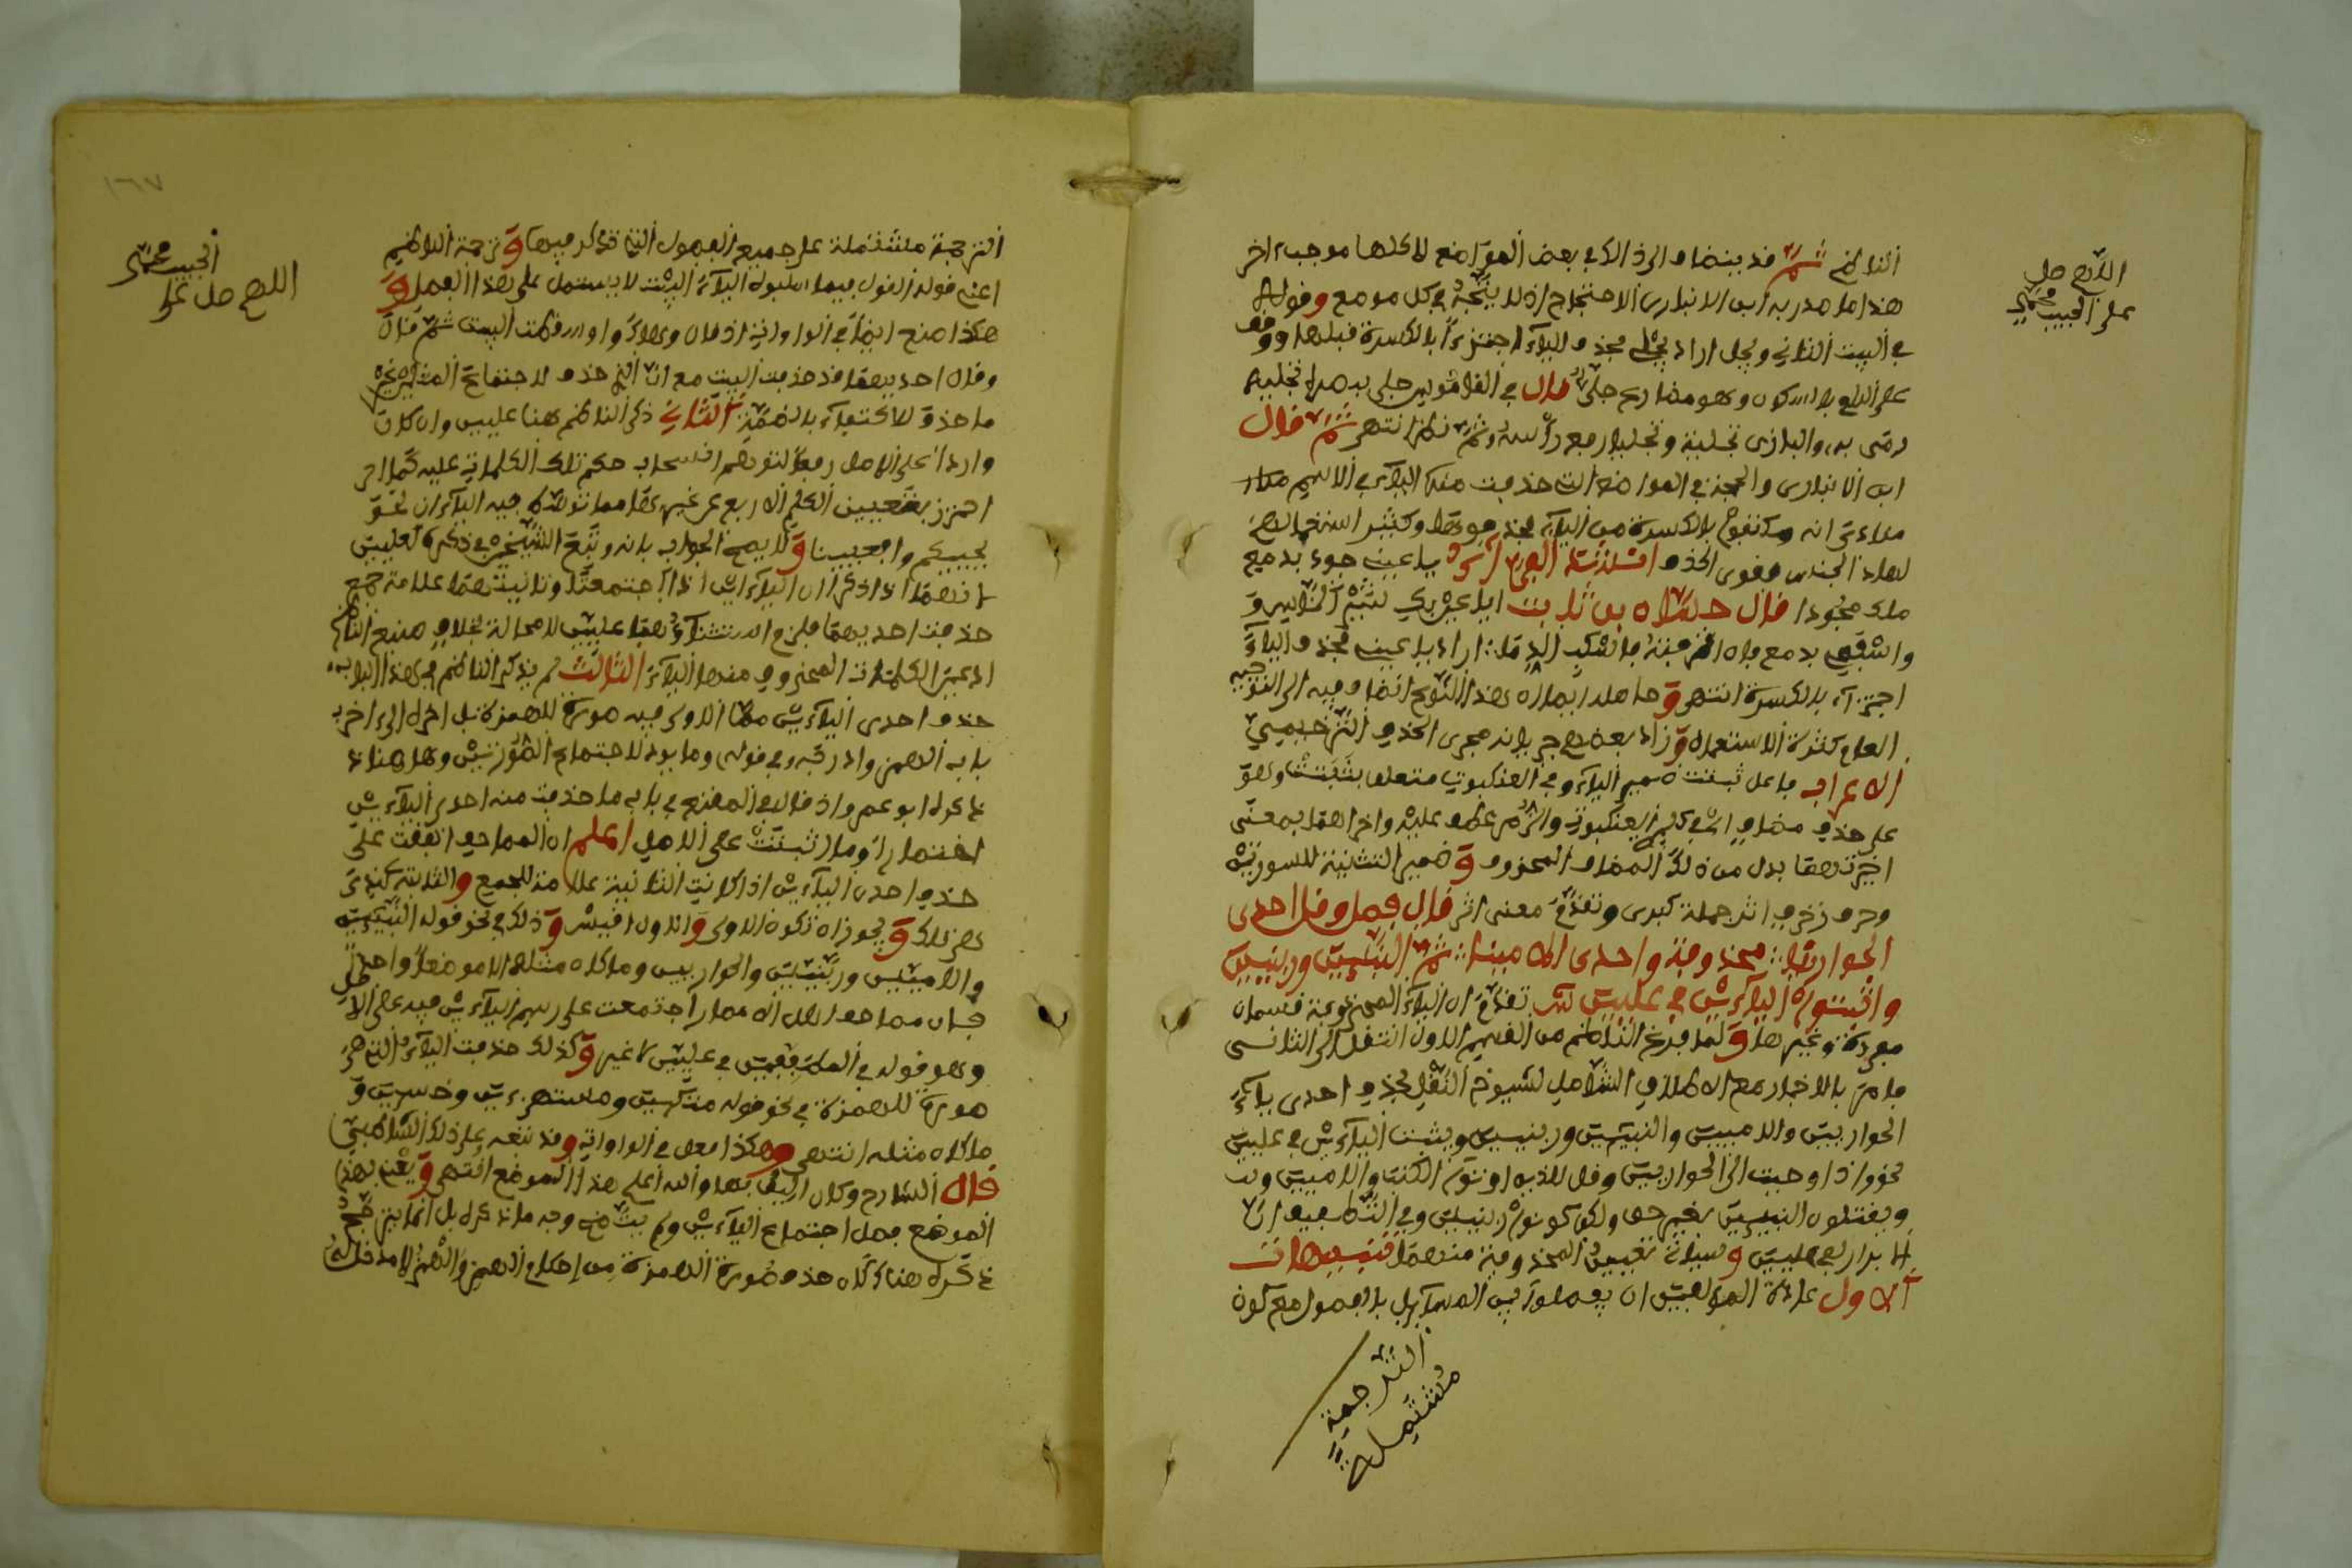 اللهم صل
على الحبيب محمد
الناظم ثم قد بينا وان ذلك في بعض المواضع لا كلها موجب اخر
هذا ما صدر به ابن الانباري الاحتجاج اذ لا يتجه في كل موضع وقوله
في البيت الثاني ويجل اراد يجلي بحذف الياء اجتزاء بالكسرة قبلها ووقف
على اللام بالسكون وهو مضارع جلى قال في القاموس جلى ببصره تجلية
رمى به والبازي تجلية وتجليا رفع رأسه ثم نظر انتهى ثم قال
ابن الانباري والحجة في المواضع التي حذفت منها الياء في الاسم
اكتفوا بالكسرة من الياء فحذفوها وكثر استعمالهم
لهذا الجنس فقوي الحذف انشدنا الفراء يا عين جودي بدمع
منك مجهودا قال حسان بن ثابت ايا عين بكي سيد الناس و
واسفحي بدمع فان انزفته فاسكبي الدما اراد يا عين فحذف الياء
اجتزاء بالكسرة انتهى وحاصله ايماله هذا النوع انضاف فيه الى التوجيه
العام كثرة الاستعمال وزاد بعضهم جريانه مجرى الحذف الترخيمي
الاعراب فاعل ثبتت ضمير الياء وفي العنكبوت متعلق بثبتت وهو
على حذف مضاف اي في كلم العنكبوت والزمر عطف عليه واخراهما بمعنى
اخيرتهما بدل من ذلك المضاف المحذوف وضمير التثنية للسورتين
وحرف زخرف اثر جملة كبرى وتقدم معنى اثر قال فصل وقل احدى
الحواريين محذوفة واحدى الامينا ثم النبيين وربنيين
واثبتوا الياءين في عليين تقدم ان الياء المحذوفة قسمان
مفردة وغيرها ولما فرغ الناظم من القسم الاول انتقل الى الثاني
فامر بالاخبار مع الاطلاق الشامل لشيوخ النقل بحذف احدى ياءي
الحواريين والاميين والنبيين وربنيين ويثبت الياءين في عليين
نحو واذ اوحيت الى الحواريين وقل للذين اوتوا الكتاب والاميين
ويقتلون النبيين بغير حق ولكن كونوا ربنيين وفي التطفيف ان كتب
الابرار لفي عليين وسيأتي تعيين المحذوفة منهما تنبيهات
الاول عادة المؤلفين ان يفصلوا بين المسائل بالفصول مع كون
الترجمة
مشتملة
١٦٧
الحبيب محمد
اللهم صل على
الترجمة مشتملة على جميع الفصول التي تذكر فيها وترجمة الناظم
اعني قوله القول فيما سلبوه الياء البيت لا يشتمل على هذا الفصل و
هكذا صنع ايضا في الواو الاتية اذ قال وهاك واوا سقطت البيت ثم قال
وقل احديهما قد حذفت البيت مع ان الذي حذف لاجتماع المثلين غير
ما حذف للاكتفاء بالضمة الثاني ذكر الناظم هنا عليين وان كان
واردا على الاصل رفعا لتوهم انسحاب حكم تلك الكلمات عليه كما
احترز بتعيين الكلم الاربع عن غيرها مما توسطت فيه الياءان نحو
يحييكم وافعيينا ولا يصح الجواب بانه وتبع الشيخين في ذكره لعليين
لانهما اذ ذكرا ان الياءين اذا اجتمعتا وثانيتهما علامة جمع
حذفت احديهما فلزم استثناؤهما عليين لا محالة بخلاف صنيع الناظم
اذ عين الكلمات المحذوف منها الياء الثالث لم يذكر الناظم في هذا الباب
حذف احدى الياءين مما الاولى فيه صورة للهمزة بل اخره الى اخر
باب الهمز وادرجه في قوله وما يؤدي لاجتماع الصورتين وها هنا
ذكره ابو عمرو اذ قال في المقنع في باب ما حذفت منه احدى الياءين
اختصارا وما اثبتت على الاصل اعلم ان المصاحف اتفقت على
حذف احدى الياءين اذا كانت الثانية علامة للجمع والثابتة عندي
هي تلك ويجوز ان تكون الاولى والاول اقيس وذلك في نحو قوله النبيين
والاميين وربنيين والحواريين وما كان مثله الا موضعا واحدا
فان مصاحف اهل الامصار اجتمعت على رسم الياءين فيه على الاصل
وهو قوله في المطففين في عليين لا غير وكذلك حذفت الياء التي هي
صورة للهمزة في نحو قوله متكئين ومستهزءين وخسئين و
ما كان مثله انتهى وهكذا فعل في الواوات وقد تبعه على ذلك الشاطبي
قال الشارح وكان اليق بها والله اعلم هذا الموضع انتهى ويعني بهذا
الموضع فصل اجتماع الياءين ولم يتضح وجه ما ذكره بل انما يترجح
ذكره هنا لو كان حذف صورة الهمزة من احكام الهمز